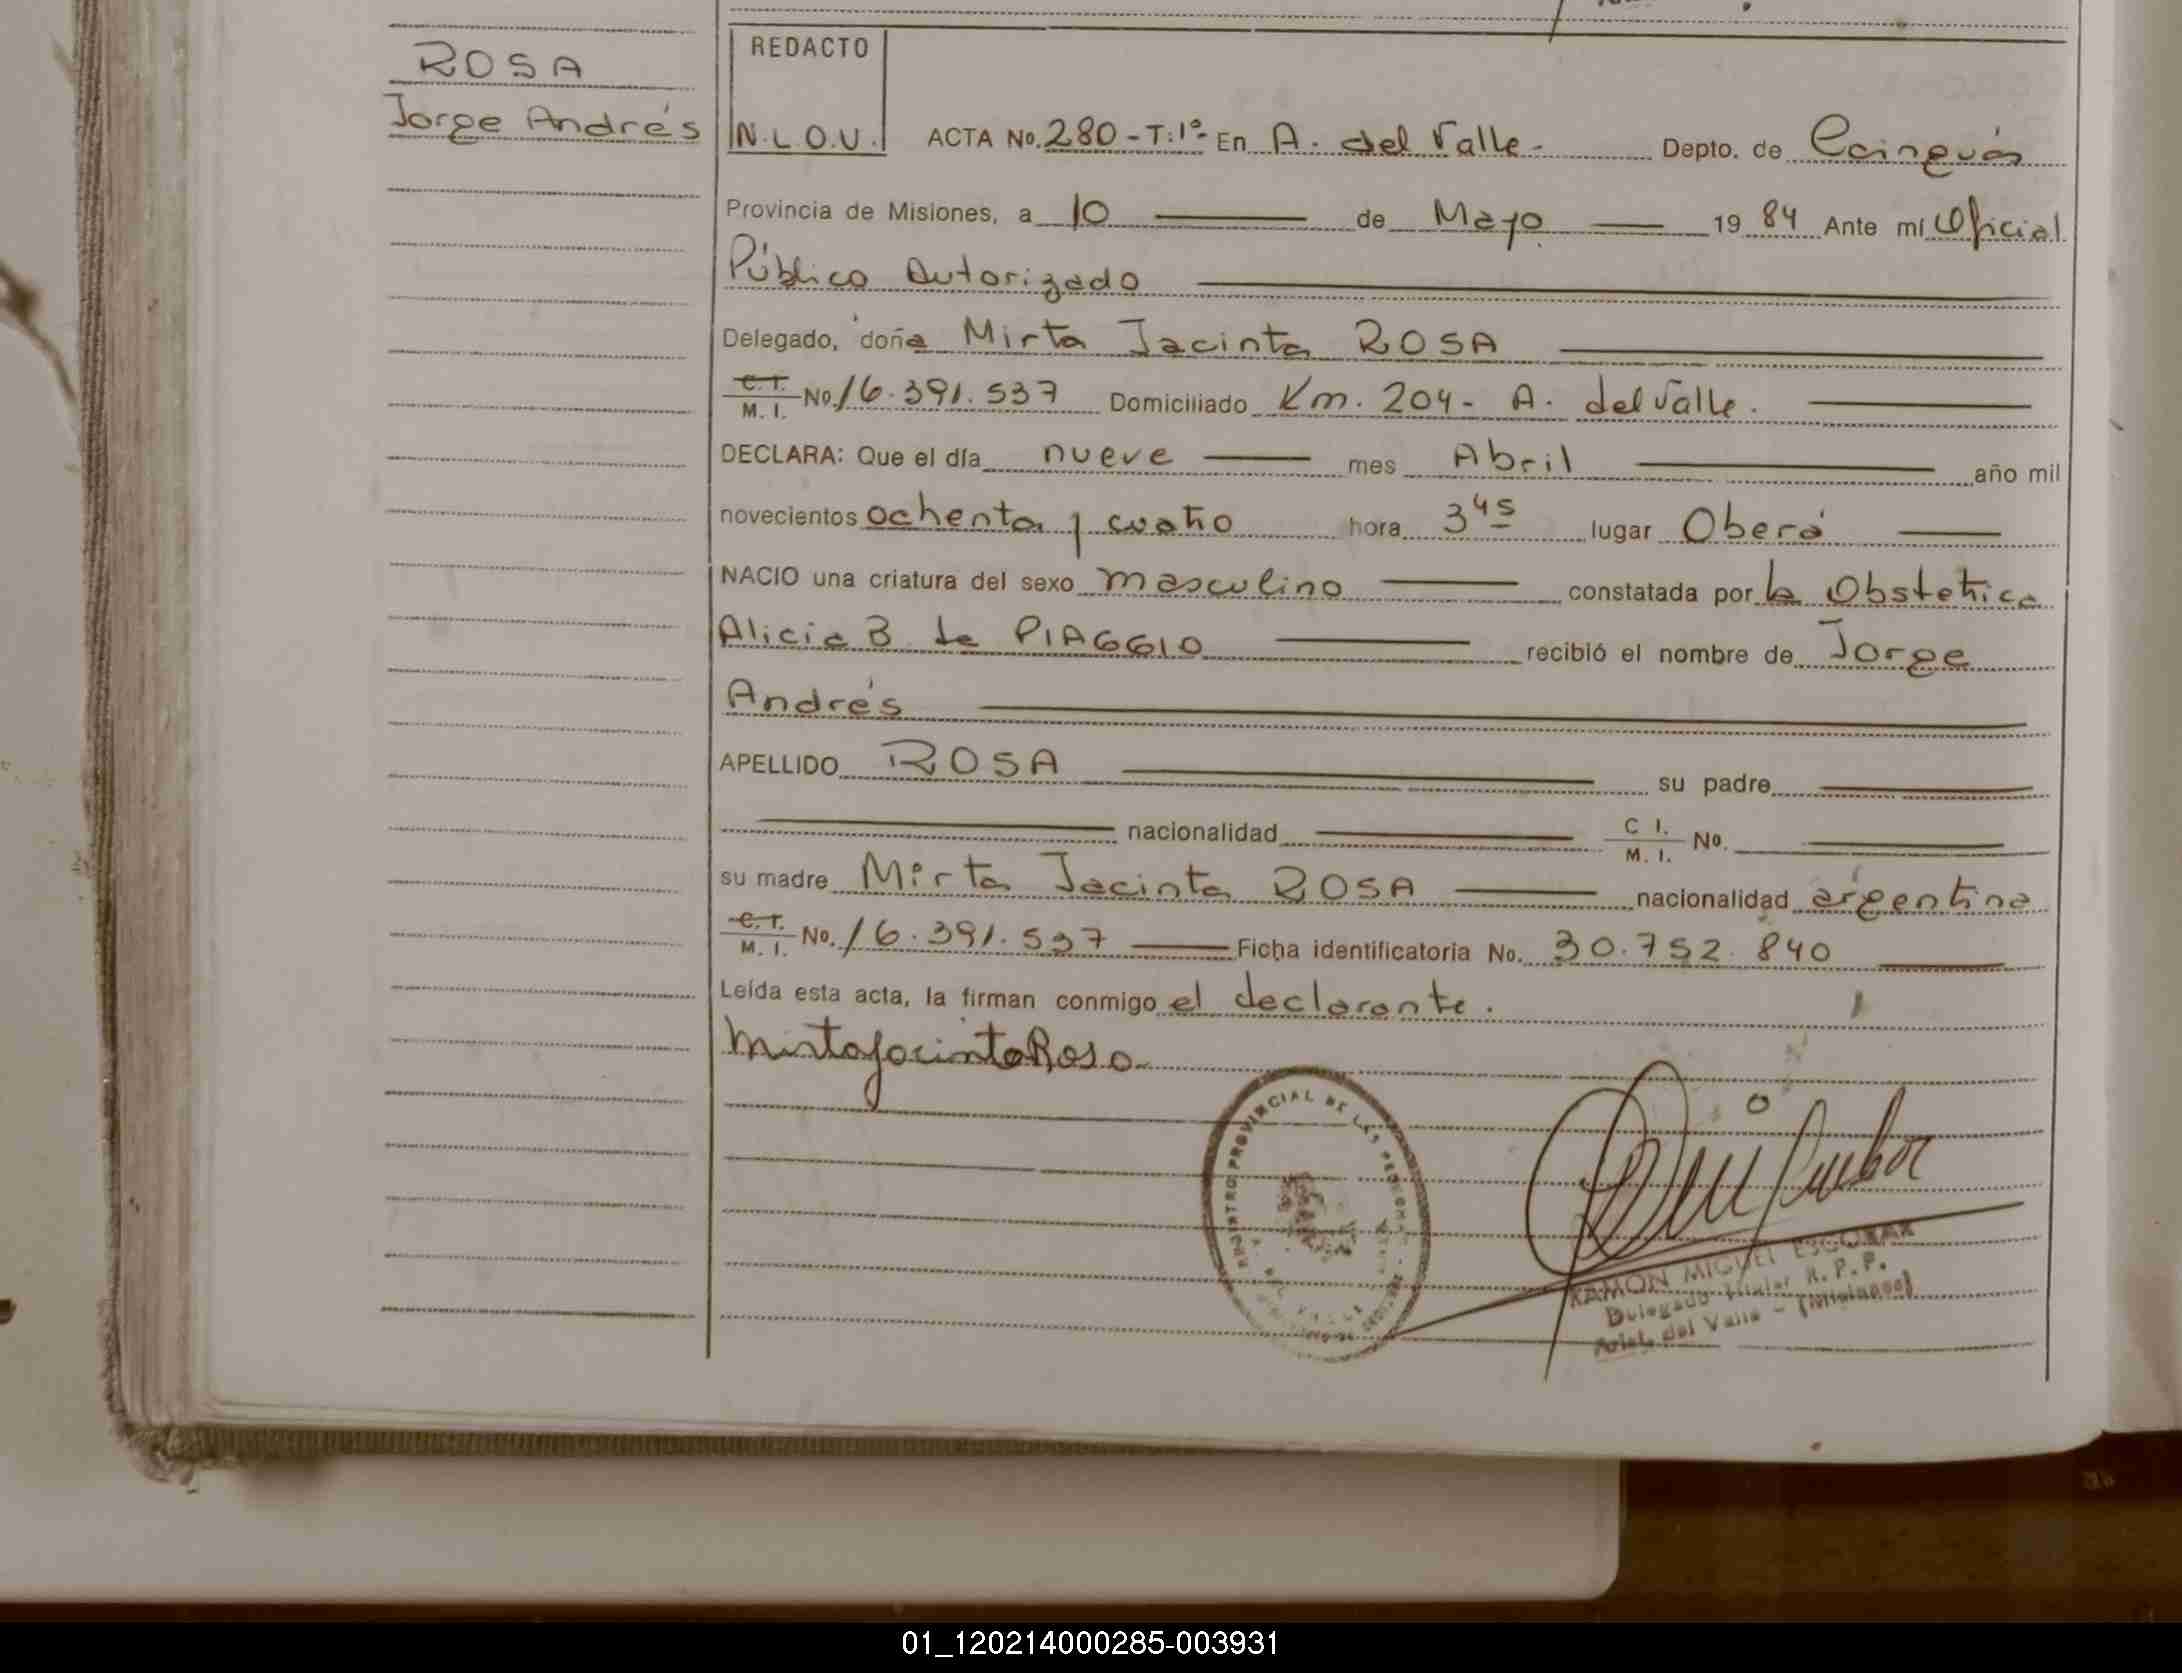 ROSA
Jorge Andrés
REDACTO
N.L.O.U.
ACTA No. 280-T:1º En A. del Valle- Depto. de Cainguás
Provincia de Misiones, a 10 de Mayo 19 84 Ante mí Oficial
Público Autorizado
Delegado, doña Mirta Jacinta ROSA
C.I. M.I. No. 16.391.537 Domiciliado Km. 204- A. del Valle.
DECLARA: Que el día nueve mes Abril año mil
novecientos ochenta y cuatro hora 3 45 lugar Oberá
NACIO una criatura del sexo masculino constatada por la Obstetrica
Alicia B. de PIAGGIO recibió el nombre de Jorge
Andrés
APELLIDO ROSA su padre
nacionalidad C I. M. I. No.
su madre Mirta Jacinta ROSA nacionalidad argentina
C.I. M.I. No. 16.391.537 Ficha identificatoria No. 30.752.840
Leída esta acta, la firman conmigo el declarante.
Mirta Jacinta Rosa
REGISTRO PROVINCIAL DE LAS PERSONAS
A. DEL VALLE
RAMON MIGUEL ESCOBAR
Delegado Titular R. P. P.
Arist. del Valle - (Misiones)
01_120214000285-003931